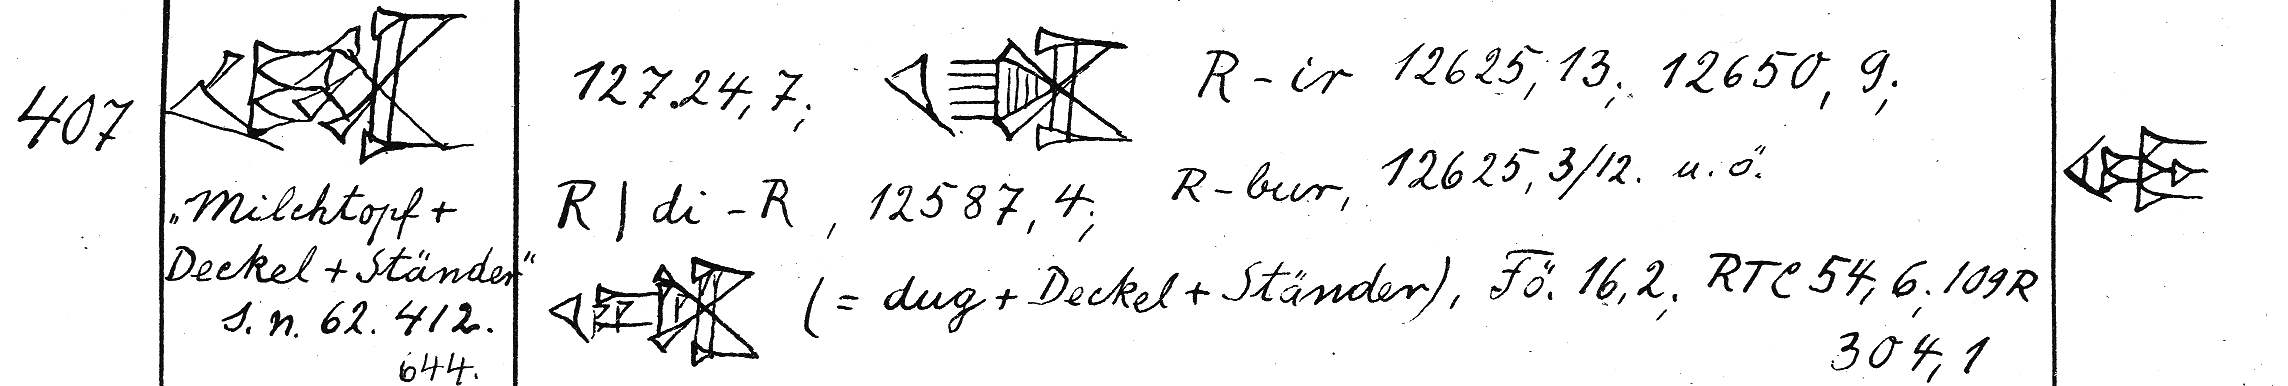 407
„Milchtopf +
Deckel + Ständer“
s. n. 62. 412.
644.
127.24, 7; R - ir 12625, 13; 12650, 9;
R | di - R, 12587, 4; R - bur, 12625, 3/12. u. ö.
(= dug + Deckel + Ständer), Fö. 16, 2; RTC 54, 6. 109R
304, 1